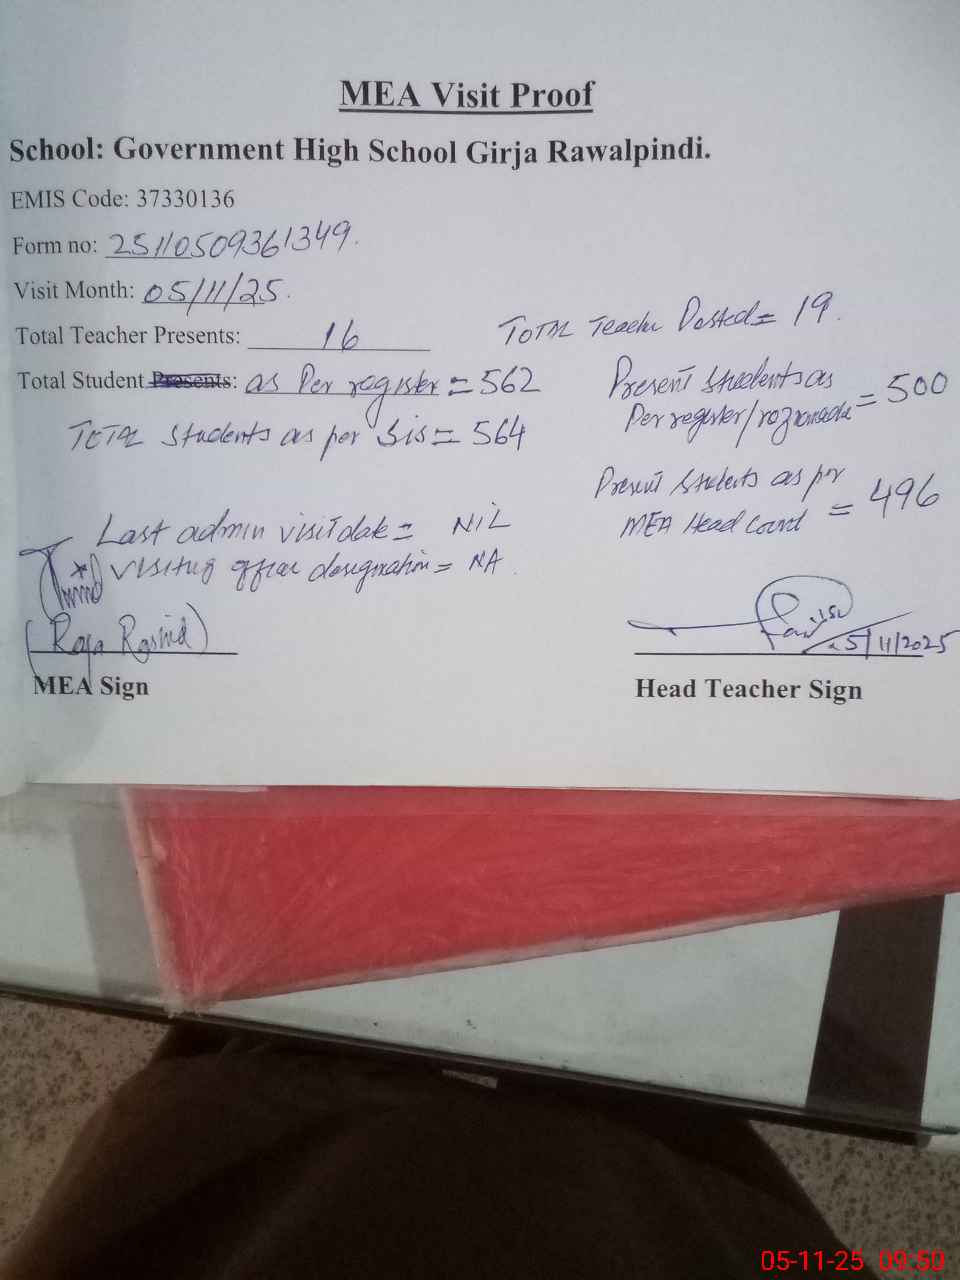 MEA Visit Proof
School: Government High School Girja Rawalpindi.
EMIS Code: 37330136
Form no: 25110509361349.
Visit Month: 05/11/25.
Total Teacher Presents: 16
TOTAL Teacher Posted = 19.
Total Student Presents: as Per register = 562
Present students as
Per register/rozнamcha = 500
TOTAL students as per Sis = 564
Present students as per
MEA Head count = 496
Last admin visit date = NIL
Visiting officer designation = NA.
(Raja Rashid)
5/11/2025
MEA Sign
Head Teacher Sign
05-11-25 09:50